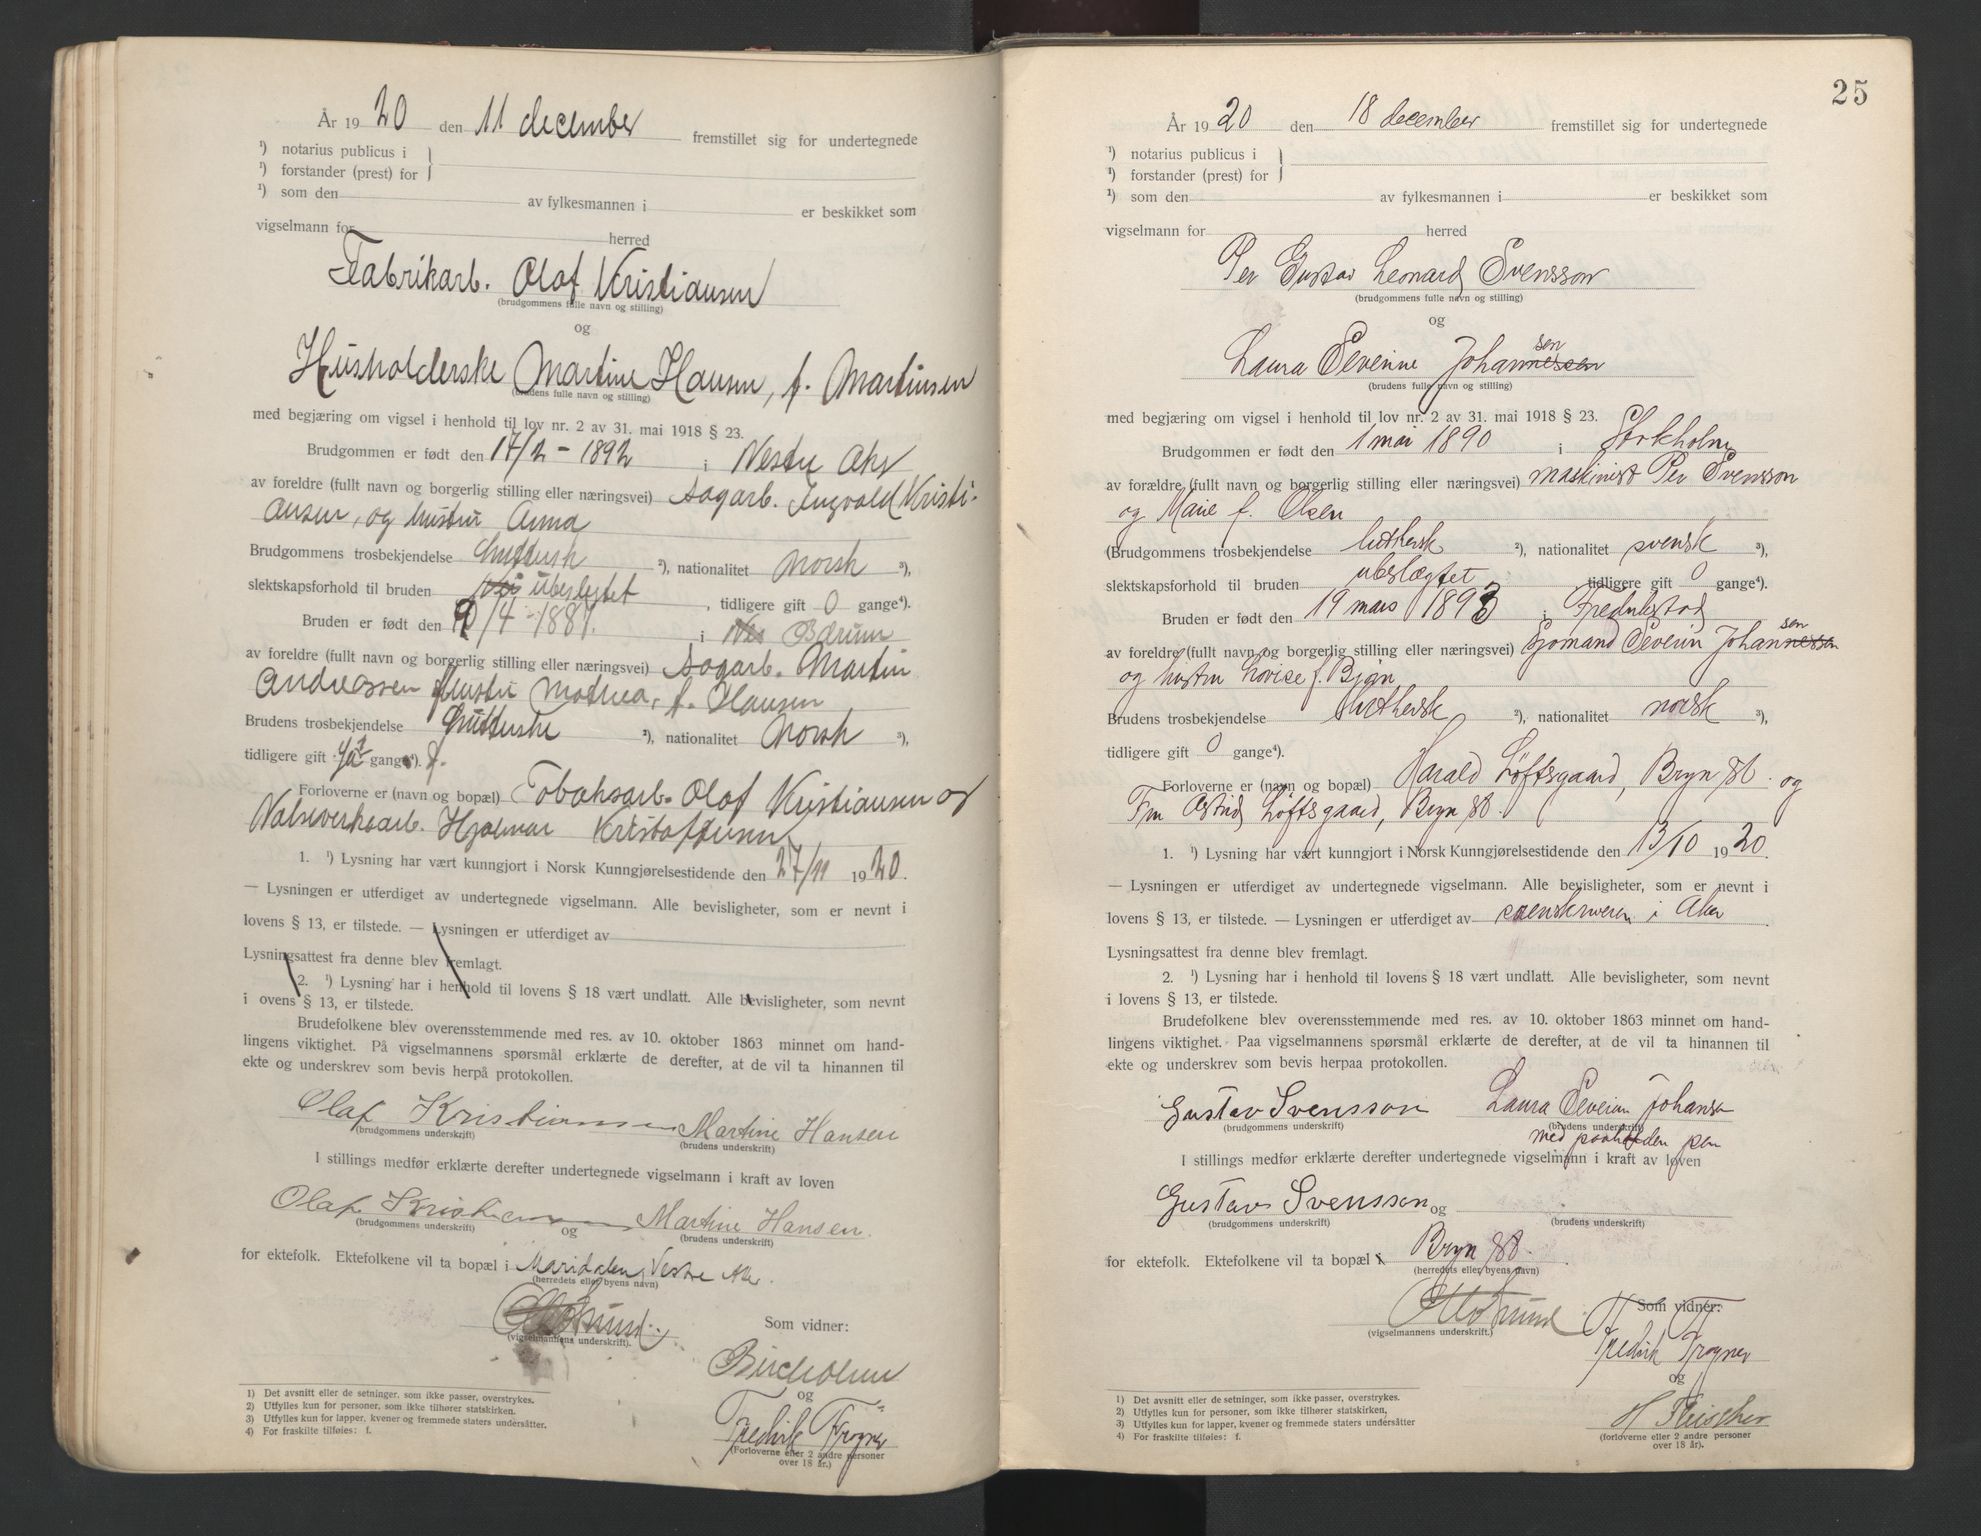 År 1920 den 11 december fremstillet sig for undertegnede
¹) notarius publicus i }
¹) forstander (prest) for }
¹) som den av fylkesmannen i er beskikket som
vigselmann for herred
Fabrikarb. Olaf Kristiansen
(brudgommens fulle navn og stilling)
og
Husholderske Martine Hansen, f. Martinsen
(brudens fulle navn og stilling)
med begjæring om vigsel i henhold til lov nr. 2 av 31. mai 1918 § 23.
Brudgommen er født den 17/2 - 1892 i Vestre Aker
av foreldre (fullt navn og borgerlig stilling eller næringsvei) Sagarb. Ingvald Kristi-
ansen, og hustru Anna
Brudgommens trosbekjendelse ²), nationalitet Norsk ³),
slektskapsforhold til bruden ubeslegtet, tidligere gift 0 gange⁴).
Bruden er født den /4 - 1887. i Bærum
av foreldre (fullt navn og borgerlig stilling eller næringsvei) Sagarb. Martin
Andreassen Hustru Mathea, f. Hansen
Brudens trosbekjendelse ²), nationalitet Norsk ³),
tidligere gift 1 gange⁴). f.
Forloverne er (navn og bopæl) Tobaksarb. Olaf Kristiansen og
Valseverksarb. Hjalmar Kristoffersen
1. ¹) Lysning har vært kunngjort i Norsk Kunngjørelsestidende den 27/11 1920.
— Lysningen er utferdiget av undertegnede vigselmann. Alle bevisligheter, som er nevnt i
lovens § 13, er tilstede. — Lysningen er utferdiget av
Lysningsattest fra denne blev fremlagt.
2. ¹) Lysning har i henhold til lovens § 18 vært undlatt. Alle bevisligheter, som nevnt
i ovens § 13, er tilstede.
Brudefolkene blev overensstemmende med res. av 10. oktober 1863 minnet om hand-
lingens viktighet. På vigselmannens spørsmål erklærte de derefter, at de vil ta hinannen til
ekte og underskrev som bevis herpå protokollen.
Olaf Kristiansen Martine Hansen
(brudgommens underskrift) (brudens underskrift)
I stillings medfør erklærte derefter undertegnede vigselmann i kraft av loven
Olaf Kristiansen Martine Hansen.
(brudgommens underskrift) og (brudens underskrift)
for ektefolk. Ektefolkene vil ta bopæl i Maridalen, Vestre Aker.
(herredets eller byens navn)
(vigselmannens underskrift).
Som vidner:
og
Fredrik Frogner
(Forloverne eller 2 andre personer
over 18 år.)
1) Det avsnitt eller de setninger, som ikke passer, overstrykes.
2) Utfylles kun for personer, som ikke tilhører statskirken.
3) Utfylles kun for lapper, kvener og fremmede staters undersåtter.
4) For fraskilte tilføies: f.
25
År 1920 den 18 december fremstillet sig for undertegnede
¹) notarius publicus i }
¹) forstander (prest) for }
¹) som den av fylkesmannen i er beskikket som
vigselmann for herred
Per Gustav Leonard Svensson
(brudgommens fulle navn og stilling)
og
sen
Laura Severine Johannessen
(brudens fulle navn og stilling)
med begjæring om vigsel i henhold til lov nr. 2 av 31. mai 1918 § 23.
Brudgommen er født den 1 mai 1890 i Stokholm
av forældre (fullt navn og borgerlig stilling eller næringsvei) maskinist Per Svensson
og Marie f. Olsen
(Brudgommens trosbekjendelse luthersk ²), nationalitet svensk ³),
slektskapsforhold til bruden ubeslægtet tidligere gift 0 gange⁴).
Bruden er født den 19 mars 1893 i Fredrikstad
sen
av foreldre (fullt navn og borgerlig stilling eller næringsvei) Sjømand Severin Johannessen
og hustru Lovise f. Bjørn
Brudens trosbekjendelse luthersk ²), nationalitet norsk ³),
tidligere gift 0 gange⁴).
Forloverne er (navn og bopæl) Harald Løftsgaard, Bryn st. og
Fru Astrid Løftsgaard, Bryn st.
1. ¹) Lysning har vært kunngjort i Norsk Kunngjørelsestidende den 13/10 1920.
— Lysningen er utferdiget av undertegnede vigselmann. Alle bevisligheter, som er nevnt i
lovens § 13, er tilstede. — Lysningen er utferdiget av sorenskriveren i Aker
Lysningsattest fra denne blev fremlagt.
2. ¹) Lysning har i henhold til lovens § 18 vært undlatt. Alle bevisligheter, som nevnt
i lovens § 13, er tilstede.
Brudefolkene blev overensstemmende med res. av 10. oktober 1863 minnet om hand-
lingens viktighet. Paa vigselmannens spørsmål erklærte de derefter, at de vil ta hinannen til
ekte og underskrev som bevis herpaa protokollen.
Gustav Svensson Laura Severine Johansen
(brudgommens underskrift) (brudens underskrift)
med paaholden pen
I stillings medfør erklærte derefter undertegnede vigselmann i kraft av loven
Gustav Svensson og
(brudgommens underskrift) (brudens underskrift)
for ektefolk. Ektefolkene vil ta bopæl i Bryn st.
(herredets eller byens navn)
(vigselmannens underskrift.)
Som vidner:
Fredrik Frogner
og
H Fleischer
(forloverne eller 2 andre personer
over 18 år).
1) Det avsnitt eller de setninger, som ikke passer, overstrykes.
2) Utfylles kun for personer, som ikke tilhører statskirken.
3) Utfylles kun for lapper, kvener og fremmede staters undersåtter
4) For fraskilte tilføies: f.